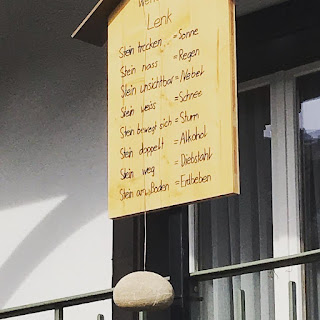 Lenk
Stein trocken = Sonne
Stein nass = Regen
Stein unsichtbar = Nebel
Stein weiss = Schnee
Stein bewegt sich = Sturm
Stein doppelt = Alkohol
Stein weg = Diebstahl
Stein am Boden = Erdbeben